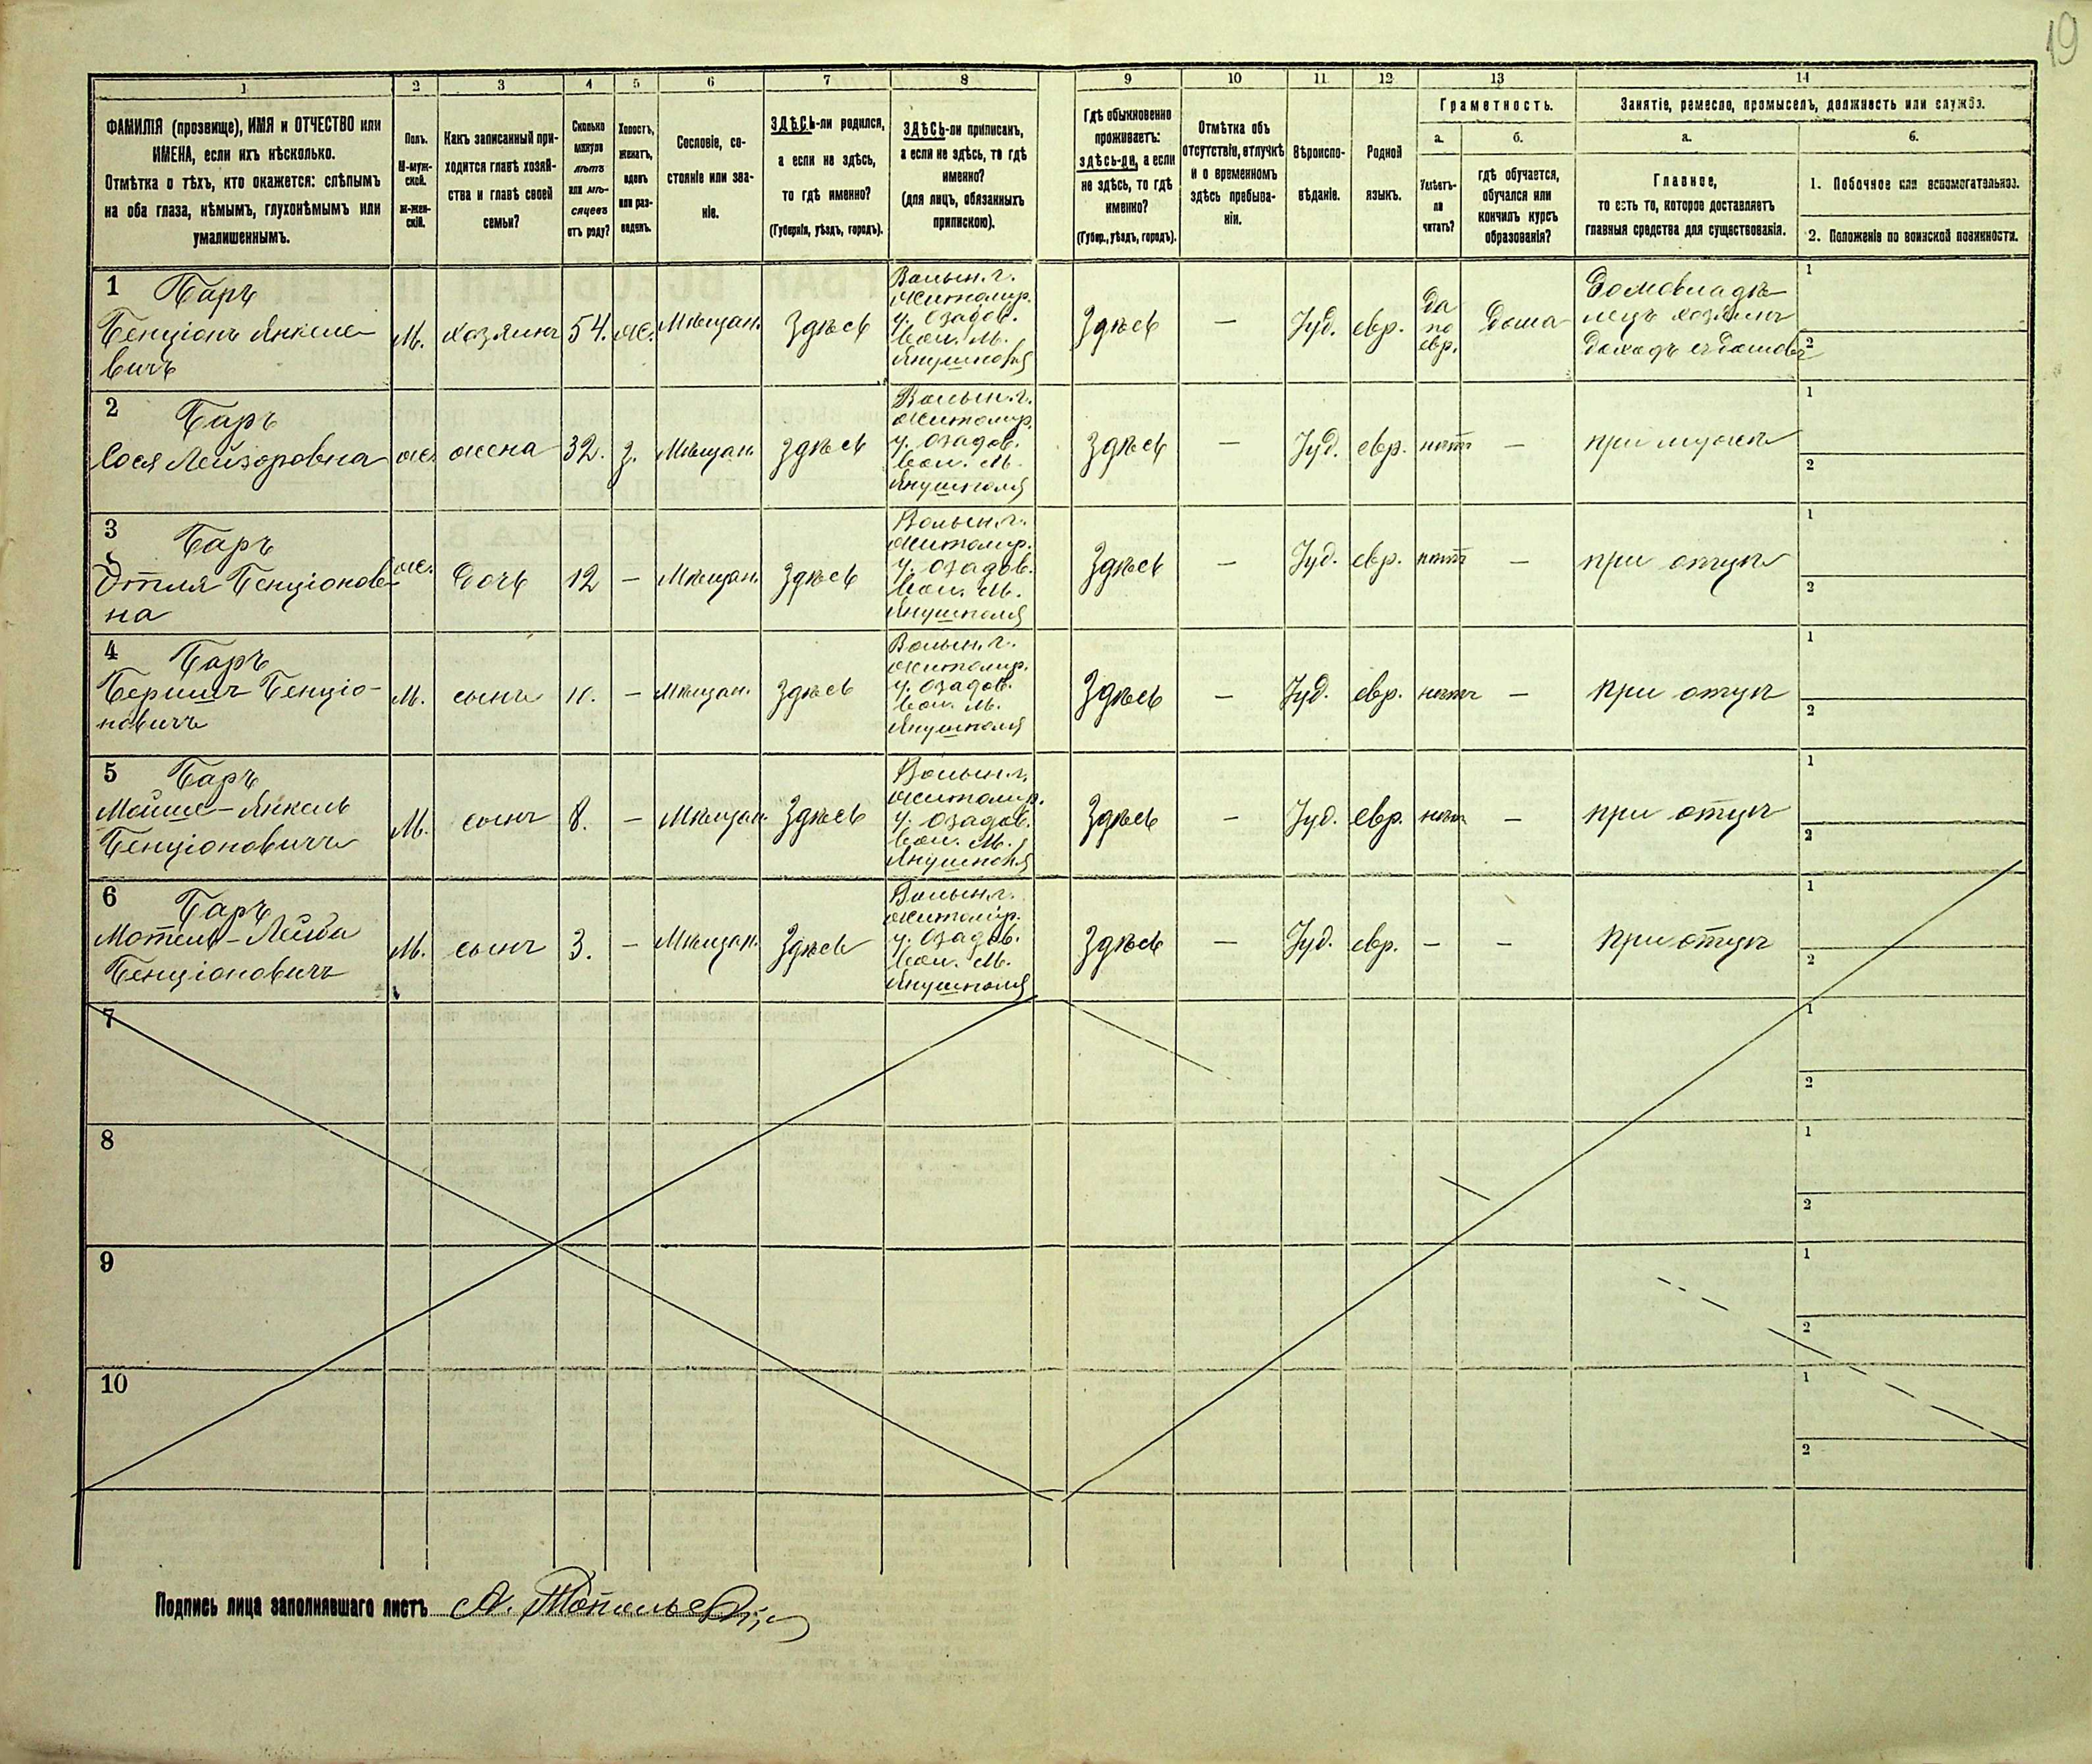 19
1 2 3 4 5 6 7 8 9 10 11 12 13 14
ФАМИЛІЯ (прозвище), ИМЯ и ОТЧЕСТВО или
ИМЕНА, если ихъ нѣсколько.
Отмѣтка о тѣхъ, кто окажется: слѣпымъ
на оба глаза, нѣмымъ, глухонѣмымъ или
умалишеннымъ.
Полъ.
М-муж-
ской.
ж-жен-
скій.
Какъ записанный при-
ходится главѣ хозяй-
ства и главѣ своей
семьи?
Сколько
минуло
лѣтъ
или мѣ-
сяцевъ
отъ роду?
Холостъ,
женатъ,
вдовъ
или раз-
веденъ.
Сословіе, со-
стояніе или зва-
ніе.
ЗДѢСЬ-ли родился,
а если не здѣсь,
то гдѣ именно?
(Губернія, уѣздъ, городъ).
ЗДѢСЬ-ли приписанъ,
а если не здѣсь, то гдѣ
именно?
(для лицъ, обязанныхъ
припискою).
Гдѣ обыкновенно
проживаетъ:
здѣсь-ли, а если
не здѣсь, то гдѣ
именно?
(Губер., уѣздъ, городъ).
Отмѣтка объ
отсутствіи, отлучкѣ
и о временномъ
здѣсь пребыва-
ніи.
Вѣроиспо-
вѣданіе.
Родной
языкъ.
Грамотность.
а. б.
Умѣетъ-
ли
читать?
гдѣ обучается,
обучался или
кончилъ курсъ
образованія?
Занятіе, ремесло, промыселъ, должность или служба.
а. б.
Главное,
то есть то, которое доставляетъ
главныя средства для существованія.
1. Побочное или вспомогательное.
2. Положеніе по воинской повинности.
1 Баръ
Бенціонъ Янкеле-
вичъ
М. хозяинъ 54. ж. Мѣщан. Здѣсь
Волын. г.
Житомир.
у. Озадов.
вол. м.
Янушполя
Здѣсь — Іуд. евр.
Да
по
евр.
Дома
Домовладѣ-
лецъ хозяинъ
Доходъ съ домовъ
1
2
2 Баръ
Сося Лейзоровна
ж. жена 32. з. Мѣщан. здѣсь
Волын. г.
Житомир.
у. Озадов.
вол. м.
Янушполя
здѣсь — Іуд. евр. нѣтъ — при мужѣ
1
2
3 Баръ
Этля Бенціонов-
на
ж. дочь 12 — Мѣщан. Здѣсь
Волын. г.
Житомир.
у. Озадов.
вол. м.
Янушполя
Здѣсь — Іуд. евр. нѣтъ — при отцѣ
1
2
4 Баръ
Бершъ Бенціо-
новичъ
М. сынъ 11. — Мѣщан. Здѣсь
Волын. г.
Житомир.
у. Озадов.
вол. м.
Янушполя
Здѣсь — Іуд. евр. нѣтъ — при отцѣ
1
2
5 Баръ
Мойше-Янкель
Бенціоновичъ
М. сынъ 8. — Мѣщан. Здѣсь
Волын. г.
Житомир.
у. Озадов.
вол. м.
Янушполя
Здѣсь — Іуд. евр. нѣтъ — при отцѣ
1
2
6 Баръ
Мотель-Лейба
Бенціоновичъ
М. сынъ 3. — Мѣщан. Здѣсь
Волын. г.
Житомир.
у. Озадов.
вол. м.
Янушполя
Здѣсь — Іуд. евр. — — При отцѣ
1
2
7
1
2
8
1
2
9
1
2
10
1
2
Подпись лица заполнявшаго листъ А.